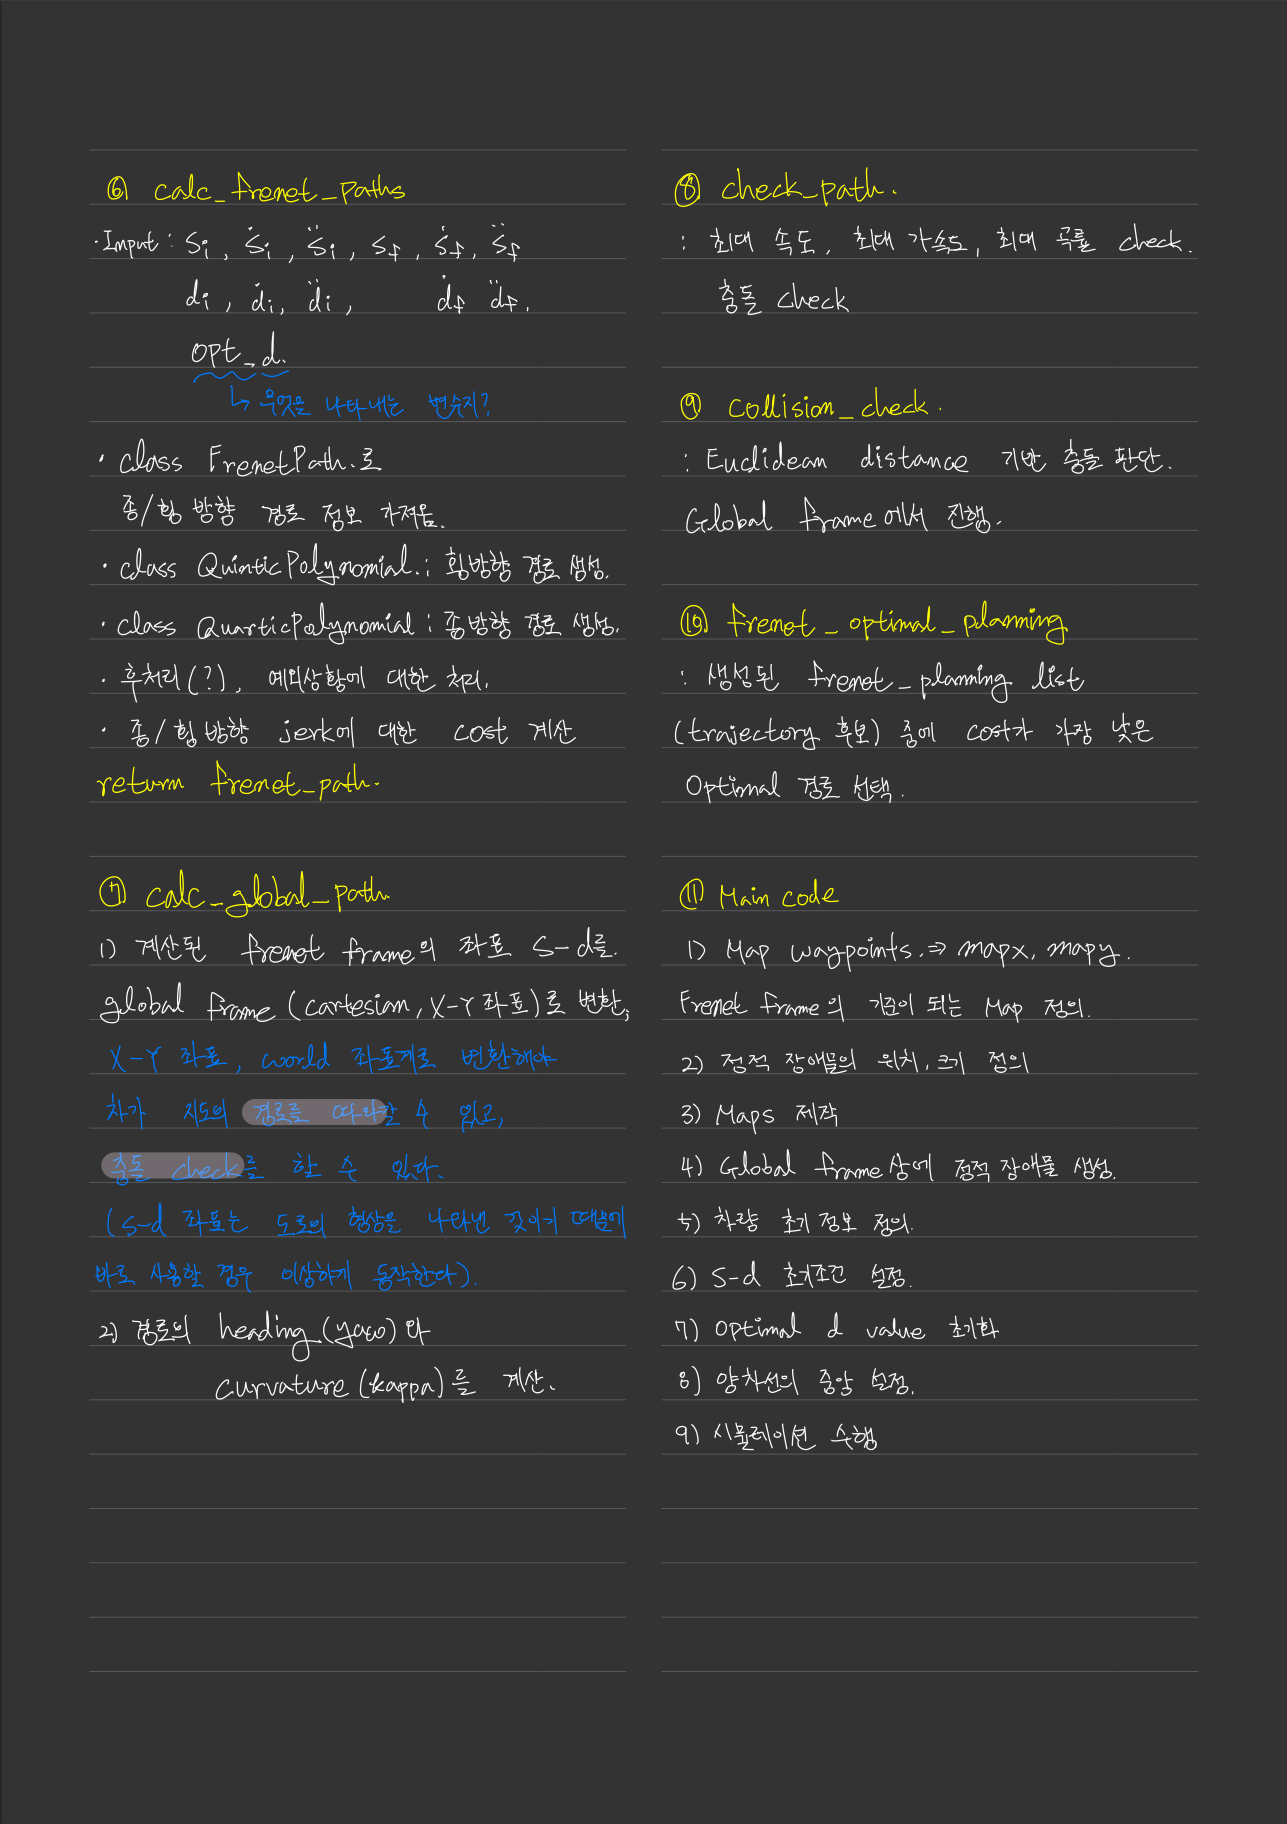 ⑥ calc_frenet_paths
· Input : si, ṡi, s̈i, sf, ṡf, s̈f
di, ḋi, d̈i, ḋf d̈f.
opt_d.
↳ 무엇을 나타내는 변수지?
· class FrenetPath.로
종/횡 방향 경로 정보 가져옴.
· class QuinticPolynomial.: 횡방향 경로 생성.
· class QuarticPolynomial : 종방향 경로 생성.
· 후처리(?), 예외상황에 대한 처리.
· 종/횡 방향 jerk에 대한 cost 계산
return frenet_path.
⑦ calc_global_path
1) 계산된 frenet frame의 좌표 s-d를
global frame (cartesian, X-Y 좌표)로 변환,
X-Y 좌표, world 좌표계로 변환해야
차가 지도의 경로를 따라갈 수 있고,
충돌 check를 할 수 있다.
(s-d 좌표는 도로의 형상을 나타낸 것이기 때문에
바로 사용할 경우 이상하게 동작한다).
2) 경로의 heading(yaw)와
curvature (kappa)를 계산.
⑧ check_path.
: 최대 속도, 최대 가속도, 최대 곡률 check.
충돌 check
⑨ collision_check.
: Euclidean distance 기반 충돌 판단.
Global frame에서 진행.
⑩ frenet_optimal_planning
: 생성된 frenet_planning list
(trajectory 후보) 중에 cost가 가장 낮은
Optimal 경로 선택.
⑪ Main code
1) Map waypoints. ⇒ mapx, mapy.
Frenet frame의 기준이 되는 Map 정의.
2) 정적 장애물의 위치, 크기 정의
3) Maps 제작
4) Global frame상에 정적 장애물 생성.
5) 차량 초기 정보 정의.
6) s-d 초기조건 설정.
7) Optimal d value 초기화
8) 양차선의 중앙 설정.
9) 시뮬레이션 수행